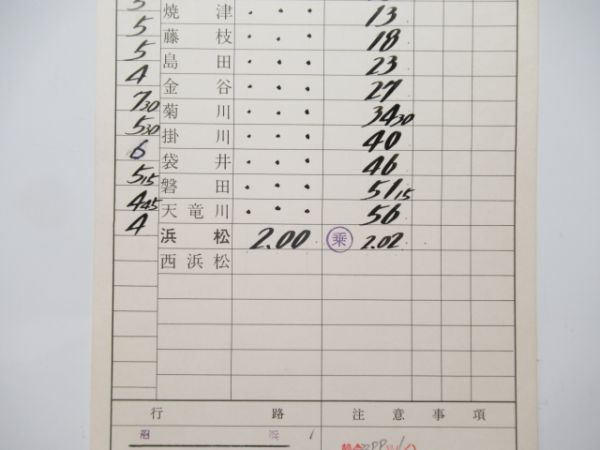 5 焼津 . . . 13
5 藤枝 . . . 18
5 島田 . . . 23
4 金谷 . . . 27
7 30 菊川 . . . 34 30
5 30 掛川 . . . 40
6 袋井 . . . 46
5 15 磐田 . . . 51 15
4 45 天竜川 . . . 56
4 浜松 2.00 乗 2.02
西浜松
行路 注意事項